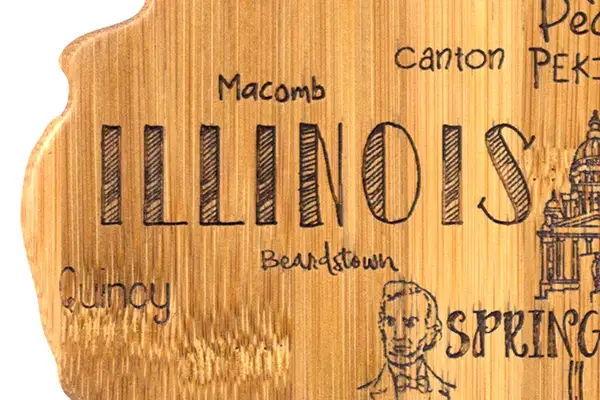 Pe
Canton
PEKI
Macomb
ILLINOIS
Beardstown
Quincy
SPRING